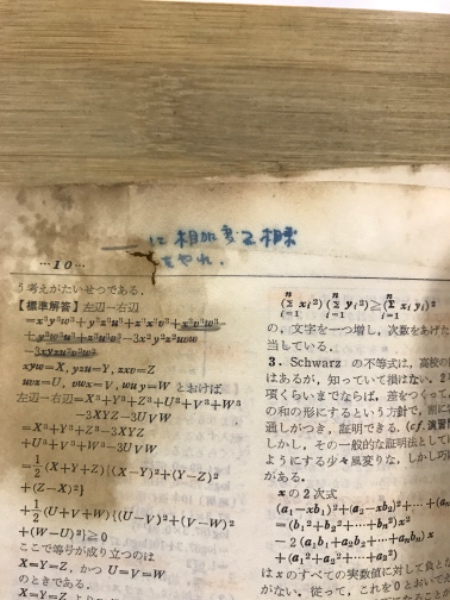 に 相加≧相乗
をやれ.
…10…
う考えがたいせつである.
【標準解答】 左辺−右辺
=x³y³w³+y³z³u³+z³x³v³+x³v³w³
+y³w³u³+z³u³v³−3x²y²z²uvw
−3xyzu²v²w²
xyw=X, yzu=Y, zxv=Z
uvz=U, vwx=V, wuy=W とおけば
左辺−右辺=X³+Y³+Z³+U³+V³+W³
−3XYZ−3UVW
=X³+Y³+Z³−3XYZ
+U³+V³+W³−3UVW
=1/2(X+Y+Z){(X−Y)²+(Y−Z)²
+(Z−X)²}
+1/2(U+V+W){(U−V)²+(V−W)²
+(W−U)²}≧0
ここで等号が成り立つのは
X=Y=Z, かつ U=V=W
のときである.
X=Y=Z
(Σ[i=1,n] xi²)(Σ[i=1,n] yi²)≧(Σ[i=1,n] xiyi)²
の, 文字を一つ増し, 次数をあげた
当している.
3. Schwarz の不等式は, 高校の
はあるが, 知っていて損はない. 2
項くらいまでならば, 差をつくって
の和の形にするという方針で,
通しがつき, 証明できる. (cf. 演習
しかし, その一般的な証明法として
ようにする少々風変りな, しかし巧
がある.
x の2次式
(a₁−xb₁)²+(a₂−xb₂)²+…+(a
=(b₁²+b₂²+…+bn²)x²
−2(a₁b₁+a₂b₂+…+anbn)x
+(a₁²+a₂²+…+an²)
は x のすべての実数値に対して負と
がない. 従って, これを0とおいて